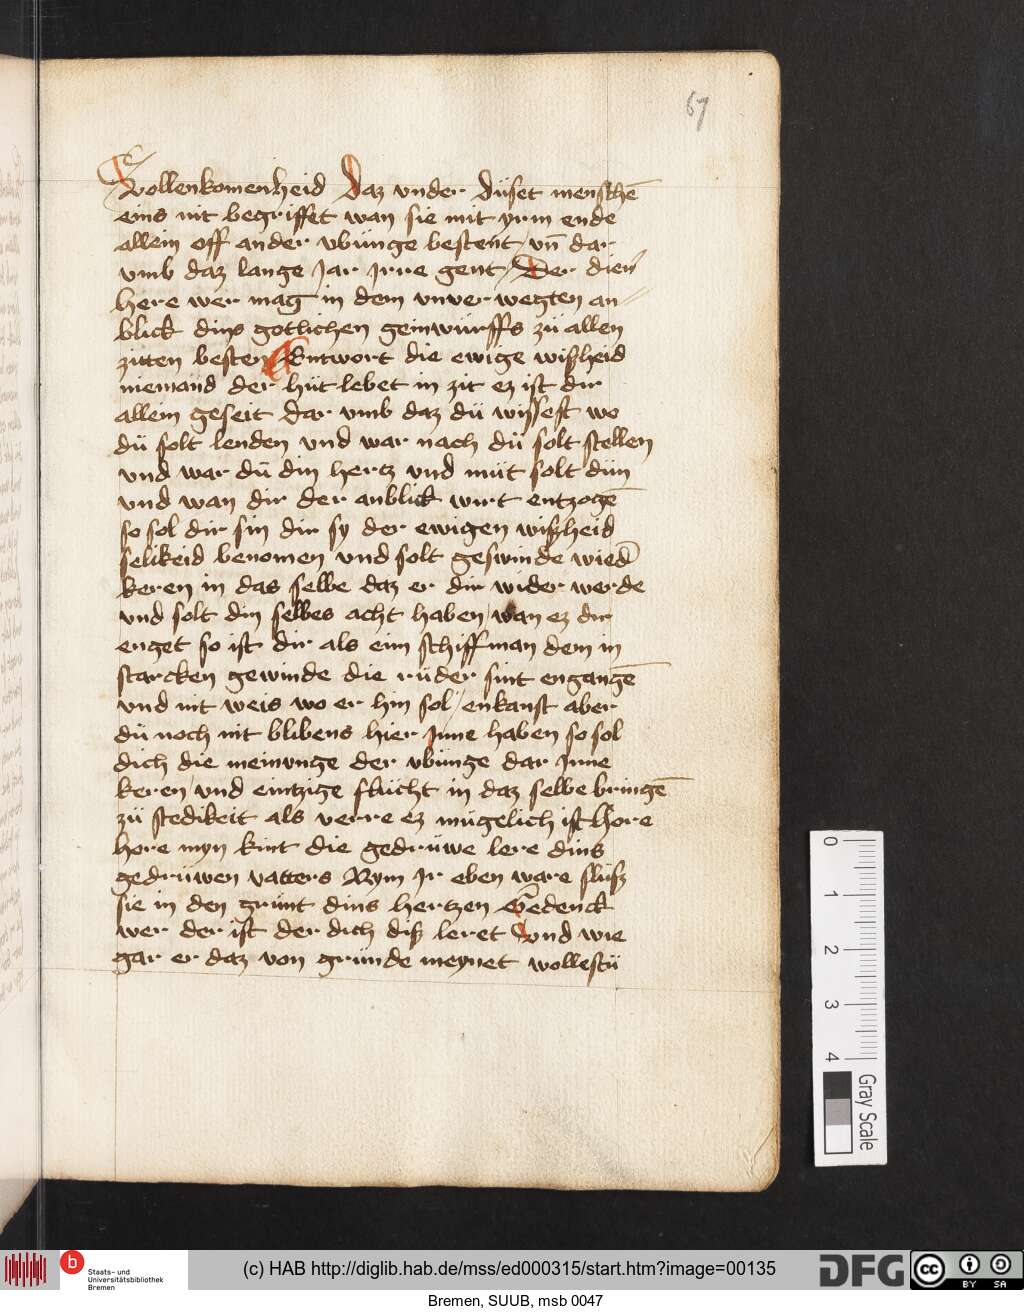 67
Vollenkomenheid Daz vnder düset mensche̅
eins nit begriffet wan sie mit yrm ende
allein off ander vbunge bestent / vn̅ dar
vmb daz lange Jar Irre gent / Der dien̅
here wer mag in dem vnver wegten an⸗
blick dins gotlichen geinwürffs zü allen
zitten besten Entwort die ewige wißheid
niemand der hüt lebet in zit ez ist dir
allein geseit dar vmb daz dü wissest wo
dü solt lenden vnd war nach dü solt stellen
vnd war dü din hertz vnd müt solt dün
vnd wan dir der anblick wirt entzoge̅
so sol dir sin dir sy der ewigen wißheid
selikeid benomen vnd solt geswinde wied̅
keren in das selbe daz er dir wider werde
vnd solt din selbes acht haben / wan ez dir
enget so ist dir als eim schiffman dem in
starcken gewinde die rüder sint engange̅
vnd nit weis wo er hin sol / enkanst aber
dü noch nit blibens hier Inne haben so sol
dich die meinvnge der vbunge dar Inne
keren / vnd eintzige flücht in daz selbe bringe̅
zü stedikeit als verre ez mügelich ist hore
hore myn kint die gedrüwe lere dins
gedrüwen vatters Nym Ir eben ware slüß
sie in den grünt dins hertzen Gedenck
wer der ist der dich diß leret vnd wie
gar er daz von gründe meynet wollestü
0 1 2 3 4
Gray Scale
b Staats- und
Universitätsbibliothek
Bremen
(c) HAB http://diglib.hab.de/mss/ed000315/start.htm?image=00135
DFG
cc BY SA
Bremen, SUUB, msb 0047